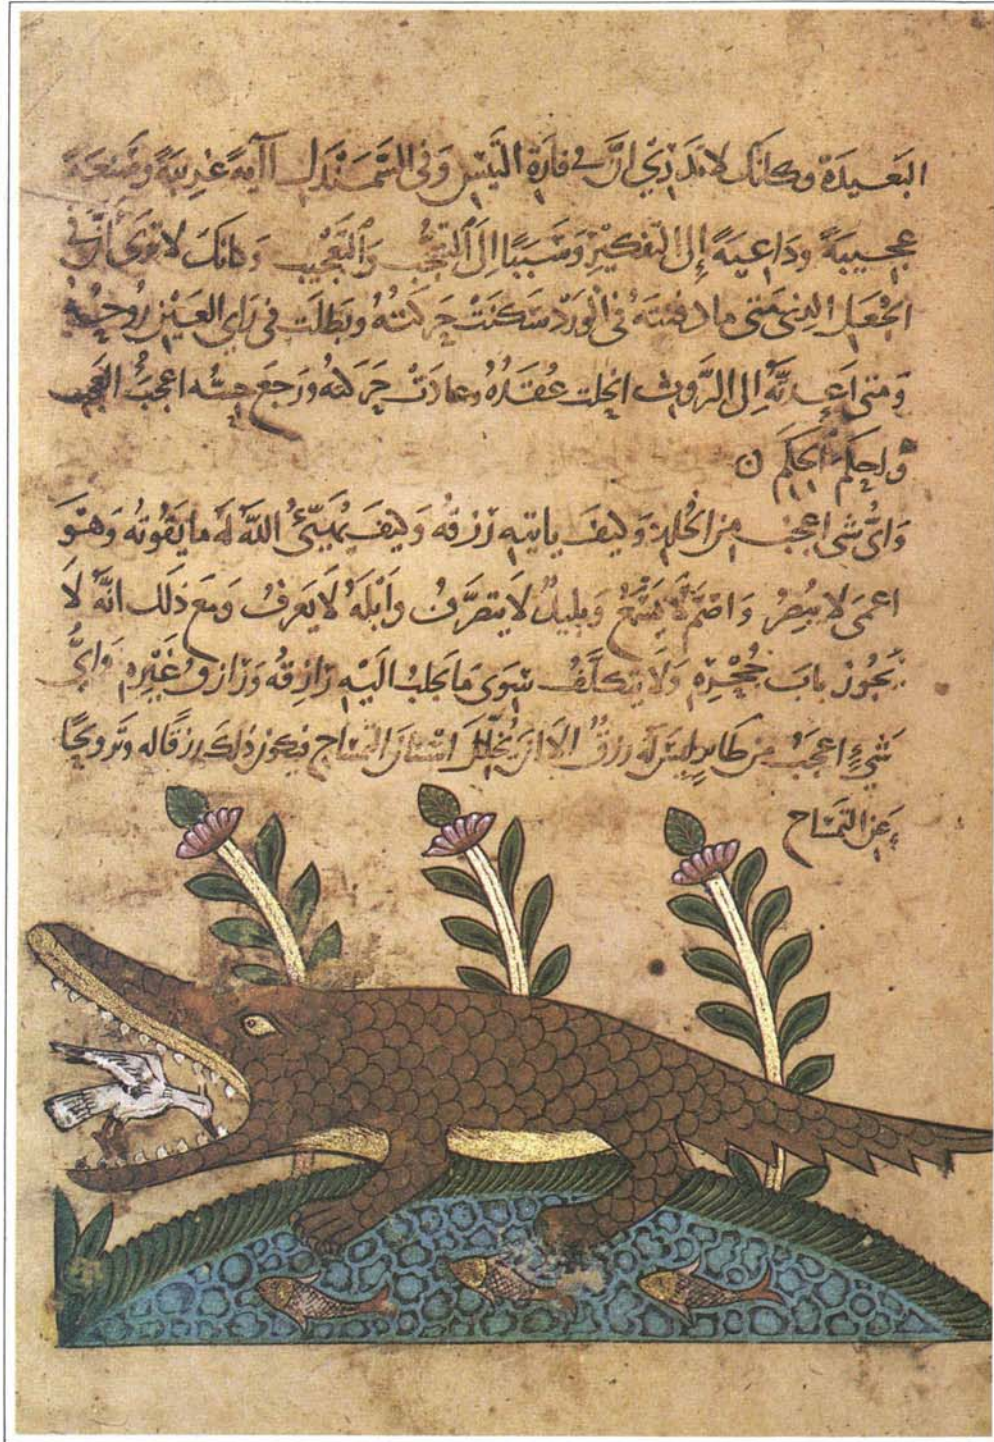 البعيدة وكانك لا تدري ان في فارة التيس وفي السمندل آية غريبة وصنعة
عجيبة وداعية إلى التفكير وسببا إلى التعجب والتعجيب وكانك لا ترى أن في
الجعل الذي متى ما دفنته في الورد سكنت حركته وبطلت في راي العين روحه
ومتى اعدته إلى الروث انحلت عقده وعادت حركته ورجع حسه اعجب العجب
ولحكم الحكم ن
واي شي اعجب من الخلد وكيف ياتيه رزقه وكيف يهيئ الله له ما يقوته وهو
اعمى لا يبصر واصم لا يسمع وبليد لا يتصرف وابله لا يعرف ومع ذلك انه لا
يجوز باب جحره ولا يتكلف سوى ما يجلب اليه رازقه ورازق غيره واي
شيء اعجب من طاير ليس له رزق الا ان يخلل اسنان التمساح فيكون ذلك رزقا له وترويحا
عن التمساح